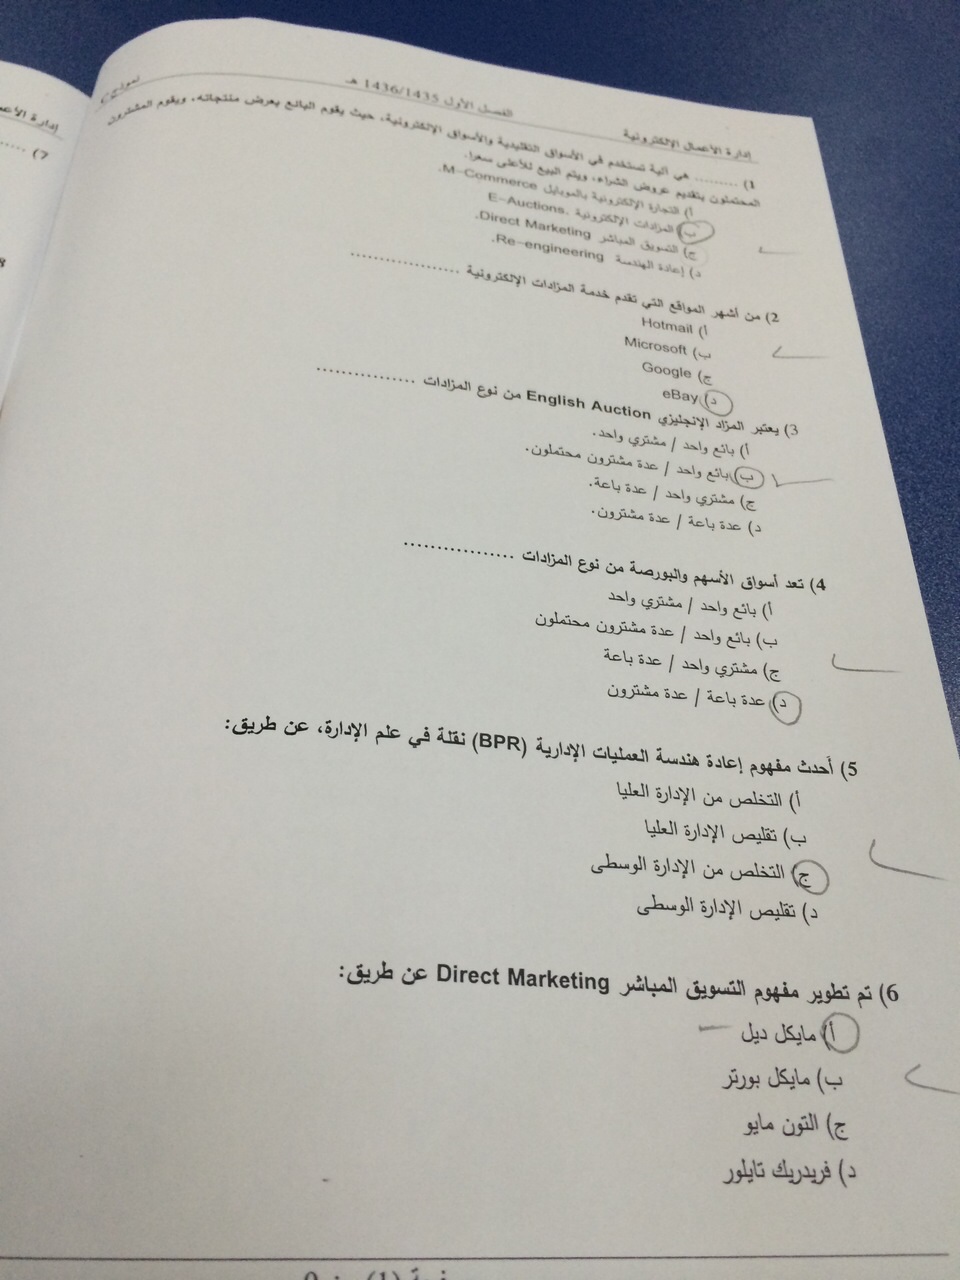 إدارة الأعمال الإلكترونية
الفصل الأول 1436/1435 هـ
نموذج C
1) ......... هي آلية تستخدم في الأسواق التقليدية والأسواق الإلكترونية، حيث يقوم البائع بعرض منتجاته، ويقوم المشترون
المحتملون بتقديم عروض الشراء، ويتم البيع للأعلى سعرا.
أ) التجارة الإلكترونية بالموبايل M-Commerce.
ب) المزادات الإلكترونية E-Auctions.
ج) التسويق المباشر Direct Marketing.
د) إعادة الهندسة Re-engineering.
2) من أشهر المواقع التي تقدم خدمة المزادات الإلكترونية .................
أ) Hotmail
ب) Microsoft
ج) Google
د) eBay
3) يعتبر المزاد الإنجليزي English Auction من نوع المزادات ...............
أ) بائع واحد / مشتري واحد.
ب) بائع واحد / عدة مشترون محتملون.
ج) مشتري واحد / عدة باعة.
د) عدة باعة / عدة مشترون.
4) تعد أسواق الأسهم والبورصة من نوع المزادات .................
أ) بائع واحد / مشتري واحد
ب) بائع واحد / عدة مشترون محتملون
ج) مشتري واحد / عدة باعة
د) عدة باعة / عدة مشترون
5) أحدث مفهوم إعادة هندسة العمليات الإدارية (BPR) نقلة في علم الإدارة، عن طريق:
أ) التخلص من الإدارة العليا
ب) تقليص الإدارة العليا
ج) التخلص من الإدارة الوسطى
د) تقليص الإدارة الوسطى
6) تم تطوير مفهوم التسويق المباشر Direct Marketing عن طريق:
أ) مايكل ديل
ب) مايكل بورتر
ج) التون مايو
د) فريدريك تايلور
إدارة الأعما
7) .....
8